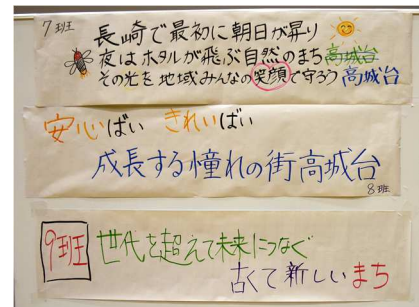 7班
長崎で最初に朝日が昇り
夜はホタルが飛ぶ自然のまち高城台
その光を地域みんなの笑顔で守ろう高城台
安心ばい きれいばい
成長する憧れの街高城台
8班
9班
世代を超えて未来につなぐ
古くて新しいまち